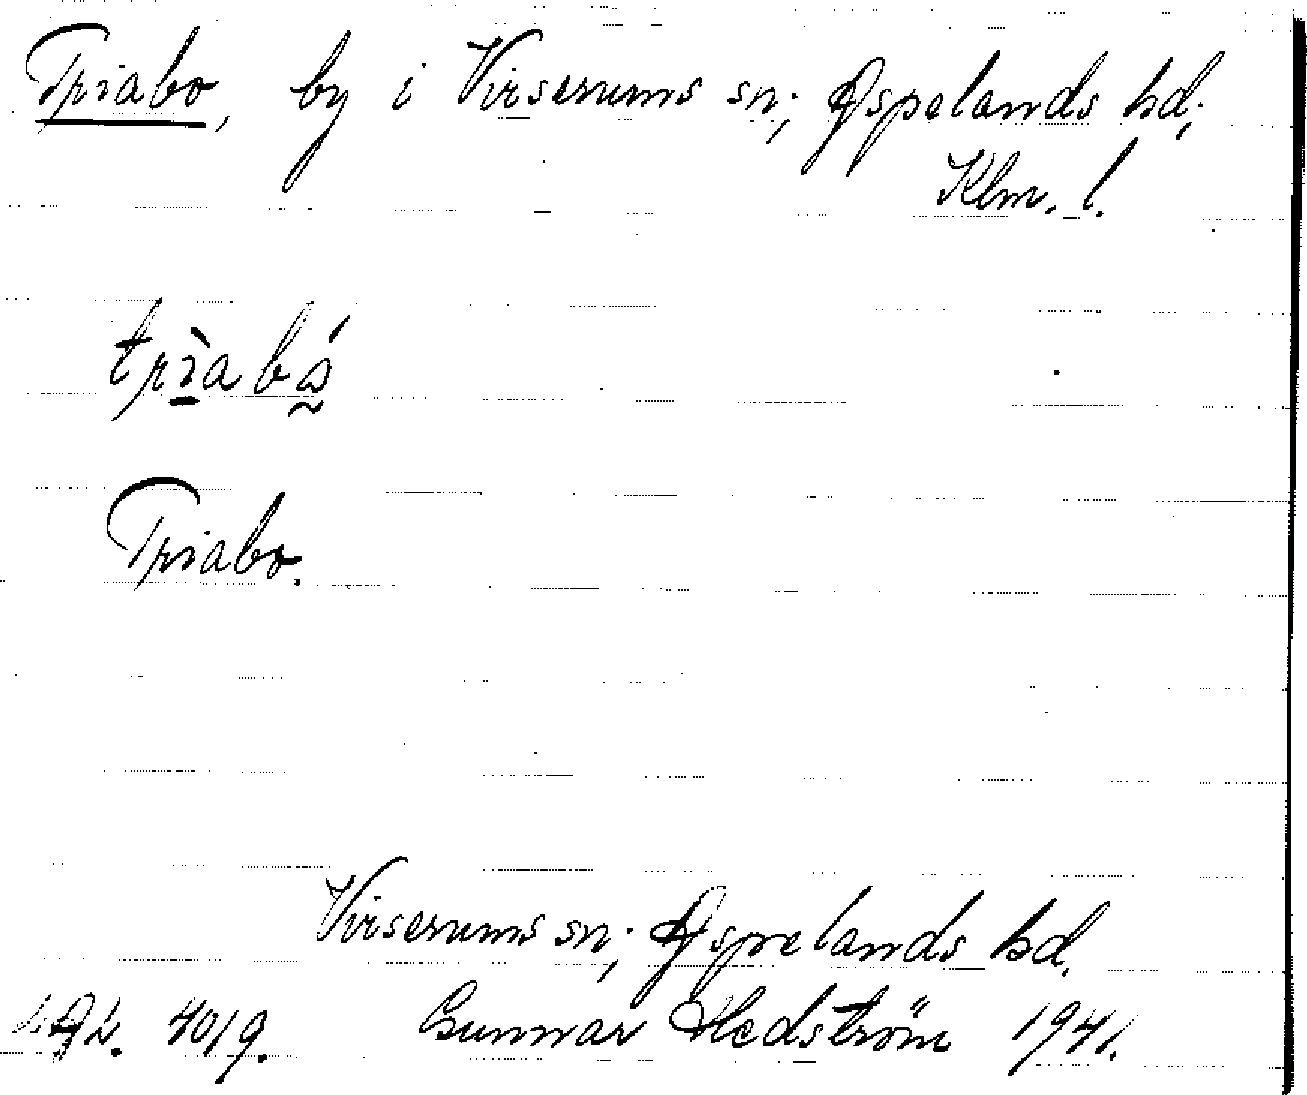 Triabo, by i Virserums sn; Aspelands hd;
Klm. l.
trìabó
Triabo.
Virserums sn; Aspelands hd.
4019. Gunnar Hedström 1941.